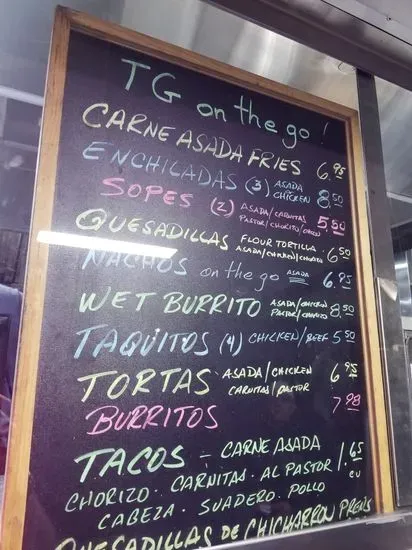 TG on the go!
CARNE ASADA FRIES 6.95
ENCHILADAS (3) ASADA CHICKEN 8.50
SOPES (2) ASADA/CARNITAS PASTOR/CHORITO/CHICKEN 5.50
QUESADILLAS FLOUR TORTILLA ASADA/CHICKEN/CHORIZO 6.50
NACHOS on the go ASADA 6.95
WET BURRITO ASADA/CHICKEN PASTOR/CHORIZO 8.50
TAQUITOS (4) CHICKEN/BEEF 5.50
TORTAS ASADA/CHICKEN CARNITAS/PASTOR 6.95
BURRITOS 7.98
TACOS - CARNE ASADA 1.65 cu
CHORIZO. CARNITAS. AL PASTOR
CABEZA. SUADERO. POLLO
QUESADILLAS DE CHICHARRON PRENS